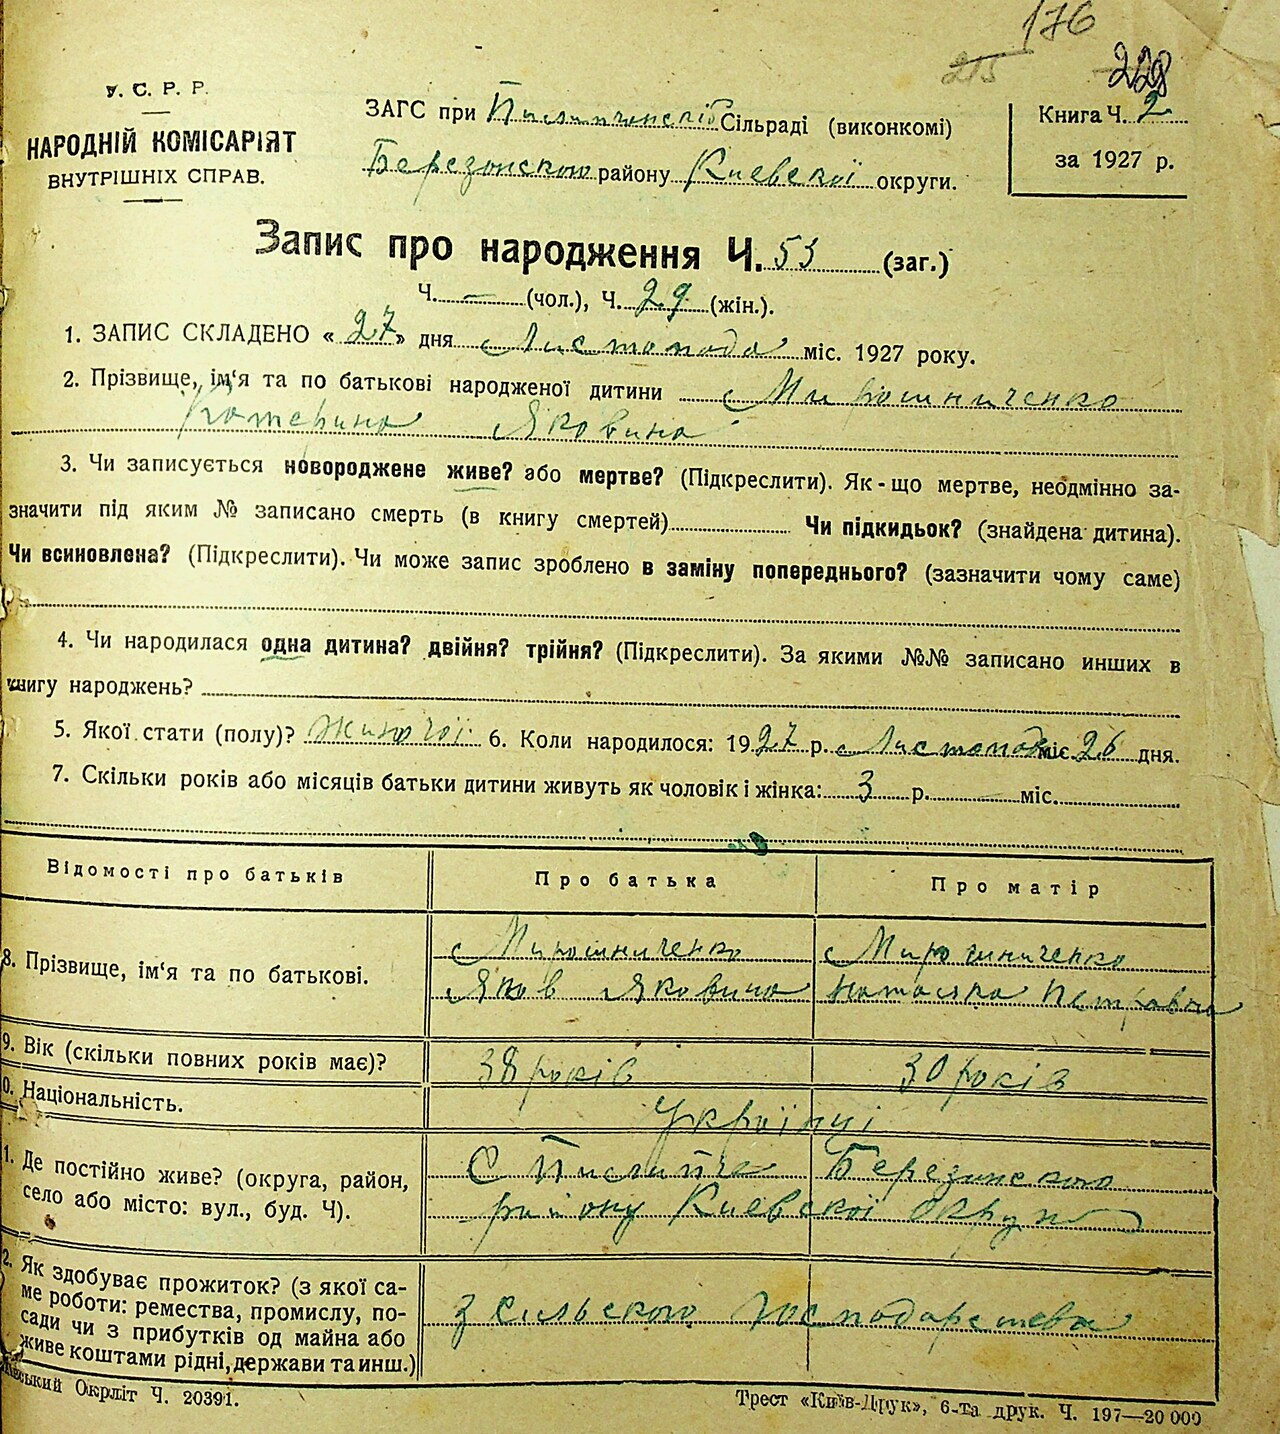 176
215
228
У. С. Р. Р.
НАРОДНІЙ КОМІСАРІЯТ
ВНУТРІШНІХ СПРАВ.
ЗАГС при Пилипченскій Сільраді (виконкомі)
Березонского району Киевскої округи.
Книга Ч. 2
за 1927 р.
Запис про народження Ч. 53 (заг.)
Ч. — (чол.), Ч. 29 (жін.).
1. ЗАПИС СКЛАДЕНО « 27 » дня Листопада міс. 1927 року.
2. Прізвище, ім'я та по батькові народженої дитини Мирошниченко
Катерина Яковина
3. Чи записується новороджене живе? або мертве? (Підкреслити). Як-що мертве, неодмінно за-
значити під яким № записано смерть (в книгу смертей) Чи підкидьок? (знайдена дитина).
Чи всиновлена? (Підкреслити). Чи може запис зроблено в заміну попереднього? (зазначити чому саме)
4. Чи народилася одна дитина? двійня? трійня? (Підкреслити). За якими №№ записано инших в
книгу народжень?
5. Якої стати (полу)? Жиночої 6. Коли народилося: 1927 р. Листопада міс. 26 дня.
7. Скільки років або місяців батьки дитини живуть як чоловік і жінка: 3 р. — міс.
Відомості про батьків Про батька Про матір
8. Прізвище, ім'я та по батькові. Мирошниченко Яков Яковича Мирошниченко Наталка Петравна
9. Вік (скільки повних років має)? 38 років 30 років
0. Національність. Українці
1. Де постійно живе? (округа, район, село або місто: вул., буд. Ч). С Пилипче Березинского
району Киевскої округи
2. Як здобуває прожиток? (з якої са-
ме роботи: ремества, промислу, по-
сади чи з прибутків од майна або
живе коштами рідні, держави та инш.) З сильского господарства
Київський Окрліт Ч. 20391.
Трест «Київ-Друк», 6-та друк. Ч. 197—20 000